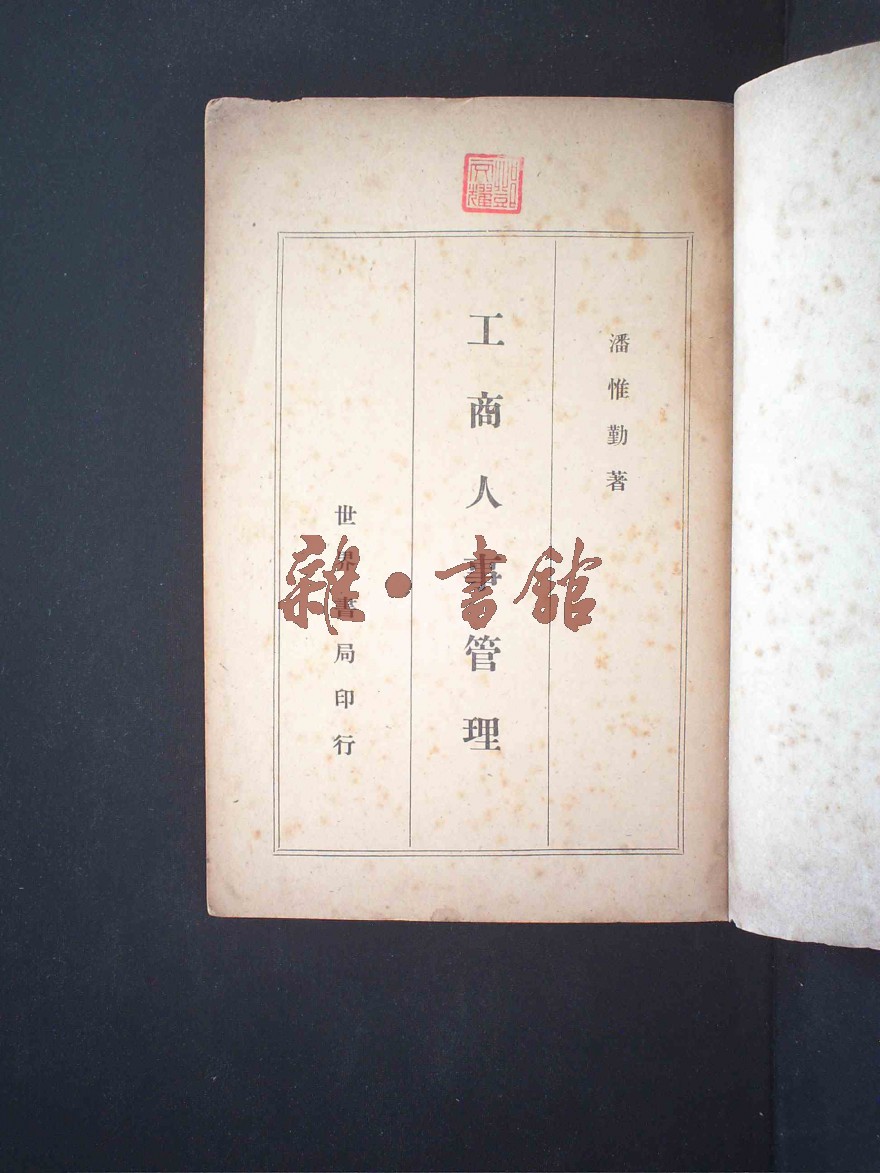 潘惟勤著
工商人事管理
世界書局印行
雜·書館